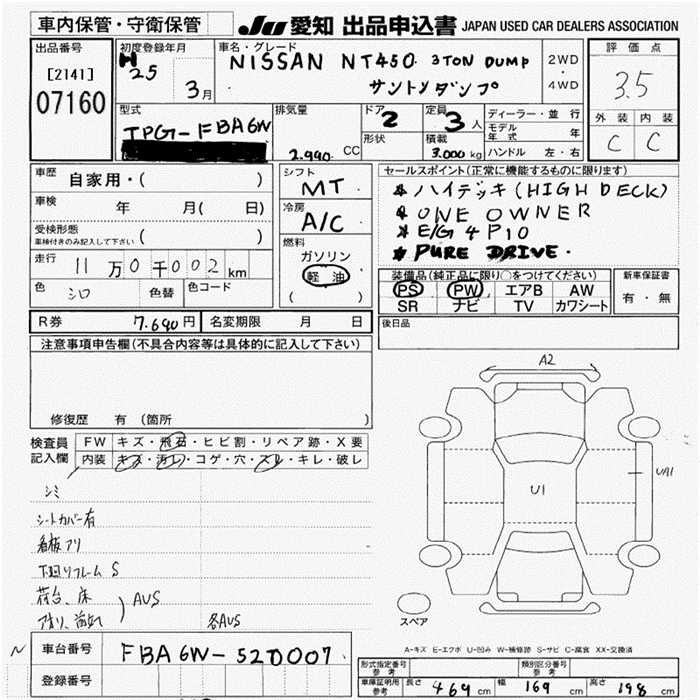 車内保管・守衛保管
JU 愛知 出品申込書 JAPAN USED CAR DEALERS ASSOCIATION
出品番号
[2141]
07160
初度登録年月
H25
3月
車名・グレード
NISSAN NT450 3TON DUMP
サントンダンプ
2WD
・
4WD
評価点
3.5
外装 内装
C C
型式
TPG-FBA6W
排気量
2.990 CC
ドア
2
形状
定員
3人
積載
3.000 kg
ディーラー・並行
モデル年式 年
ハンドル 左・右
車歴 自家用・( )
車検 年 月( 日)
受検形態
車検付きのみ記入して下さい ( )
走行 11万0千002km
色 シロ 色替 色コード
シフト
MT
冷房
A/C
燃料
ガソリン
軽油
( )
セールスポイント(正常に機能するものに限ります)
* ハイデッキ(HIGH DECK)
* ONE OWNER
* E/G 4P10
* PURE DRIVE.
装備品(純正品に限り○をつけてください)
PS PW エアB AW
SR ナビ TV カワシート
新車保証書
有・無
R券 7.690円
名変期限 月 日
後日品
注意事項申告欄(不具合内容等は具体的に記入して下さい)
修復歴 有 (箇所
検査員記入欄
FW キズ・飛石・ヒビ割・リペア跡・X要
内装 キズ・汚レ・コゲ・穴・スレ・キレ・破レ
シミ
シートカバー有
看板アリ
下廻りフレームS
荷台、床
AUS
各AUS
A2
U1
UA1
スペア
A-キズ E-エクボ U-凹み W-補修跡 S-サビ C-腐食 XX-交換済
N
車台番号 FBA6W-520007
登録番号
形式指定番号
参考
類別区分番号
参考
車庫証明用
参考
長さ 469 cm 幅 169 cm 高さ 198 cm